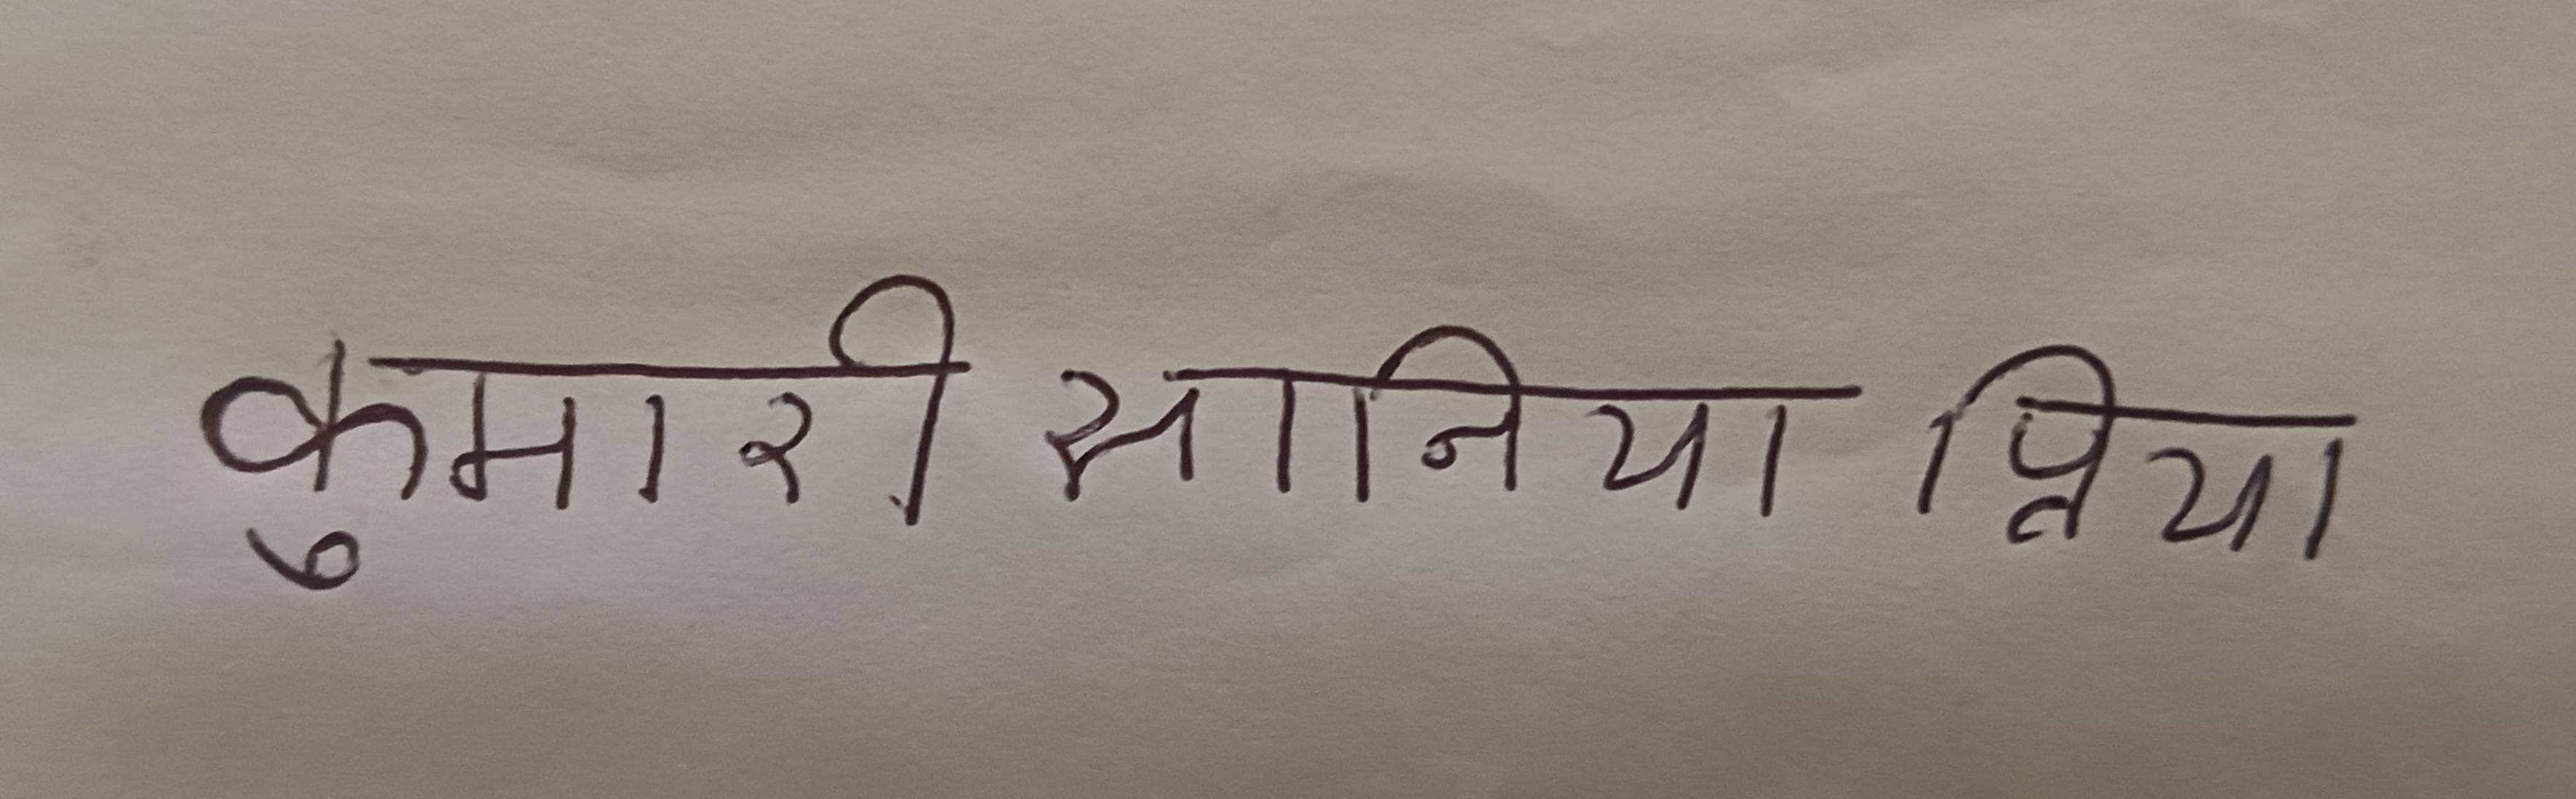 कुमारी सानिया प्रिया